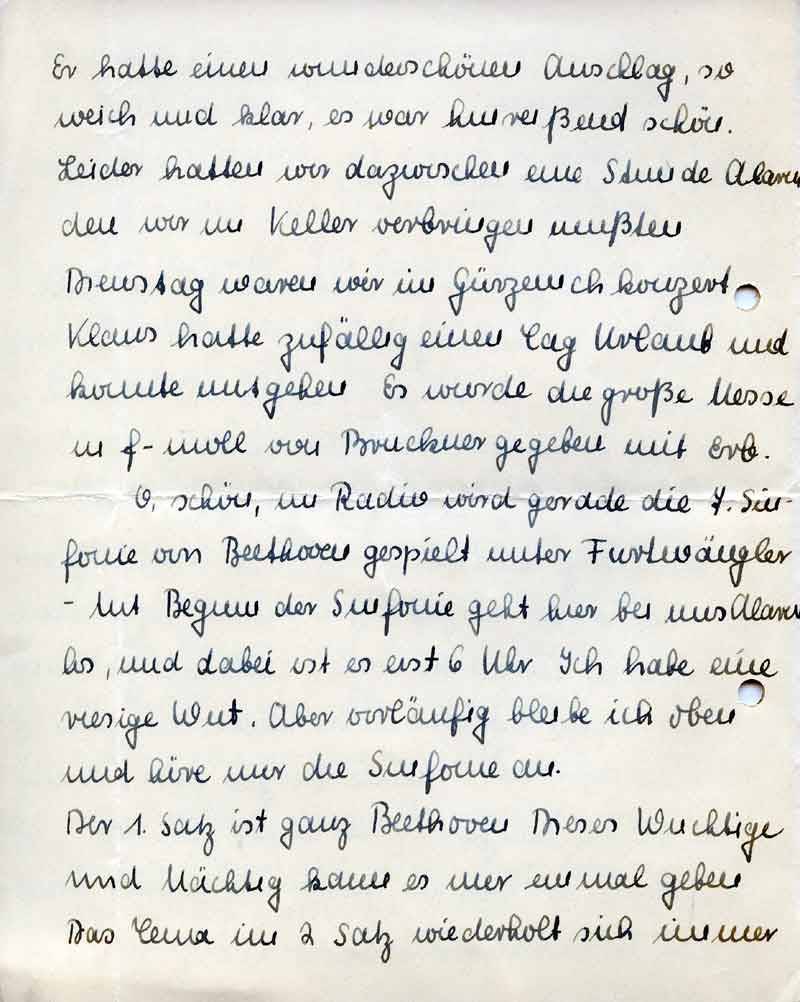 Er hatte einen wunderschönen Anschlag, so
weich und klar, es war hinreißend schön.
Leider hatten wir dazwischen eine Stunde Alarm
den wir im Keller verbringen mußten
Dienstag waren wir im Gürzenichkonzert.
Klaus hatte zufällig einen Tag Urlaub und
konnte mitgehen Es wurde die große Messe
in f-moll von Bruckner gegeben mit Erb.
O, schön, im Radio wird gerade die 7. Sin-
fonie von Beethoven gespielt unter Furtwängler
- Mit Beginn der Sinfonie geht hier bei uns Alarm
los, und dabei ist es erst 6 Uhr Ich habe eine
riesige Wut. Aber vorläufig bleibe ich oben
und höre mir die Sinfonie an.
Der 1. Satz ist ganz Beethoven Dieses Wuchtige
und Mächtig kann es nur einmal geben
Das Tema im 2 Satz wiederholt sich immer